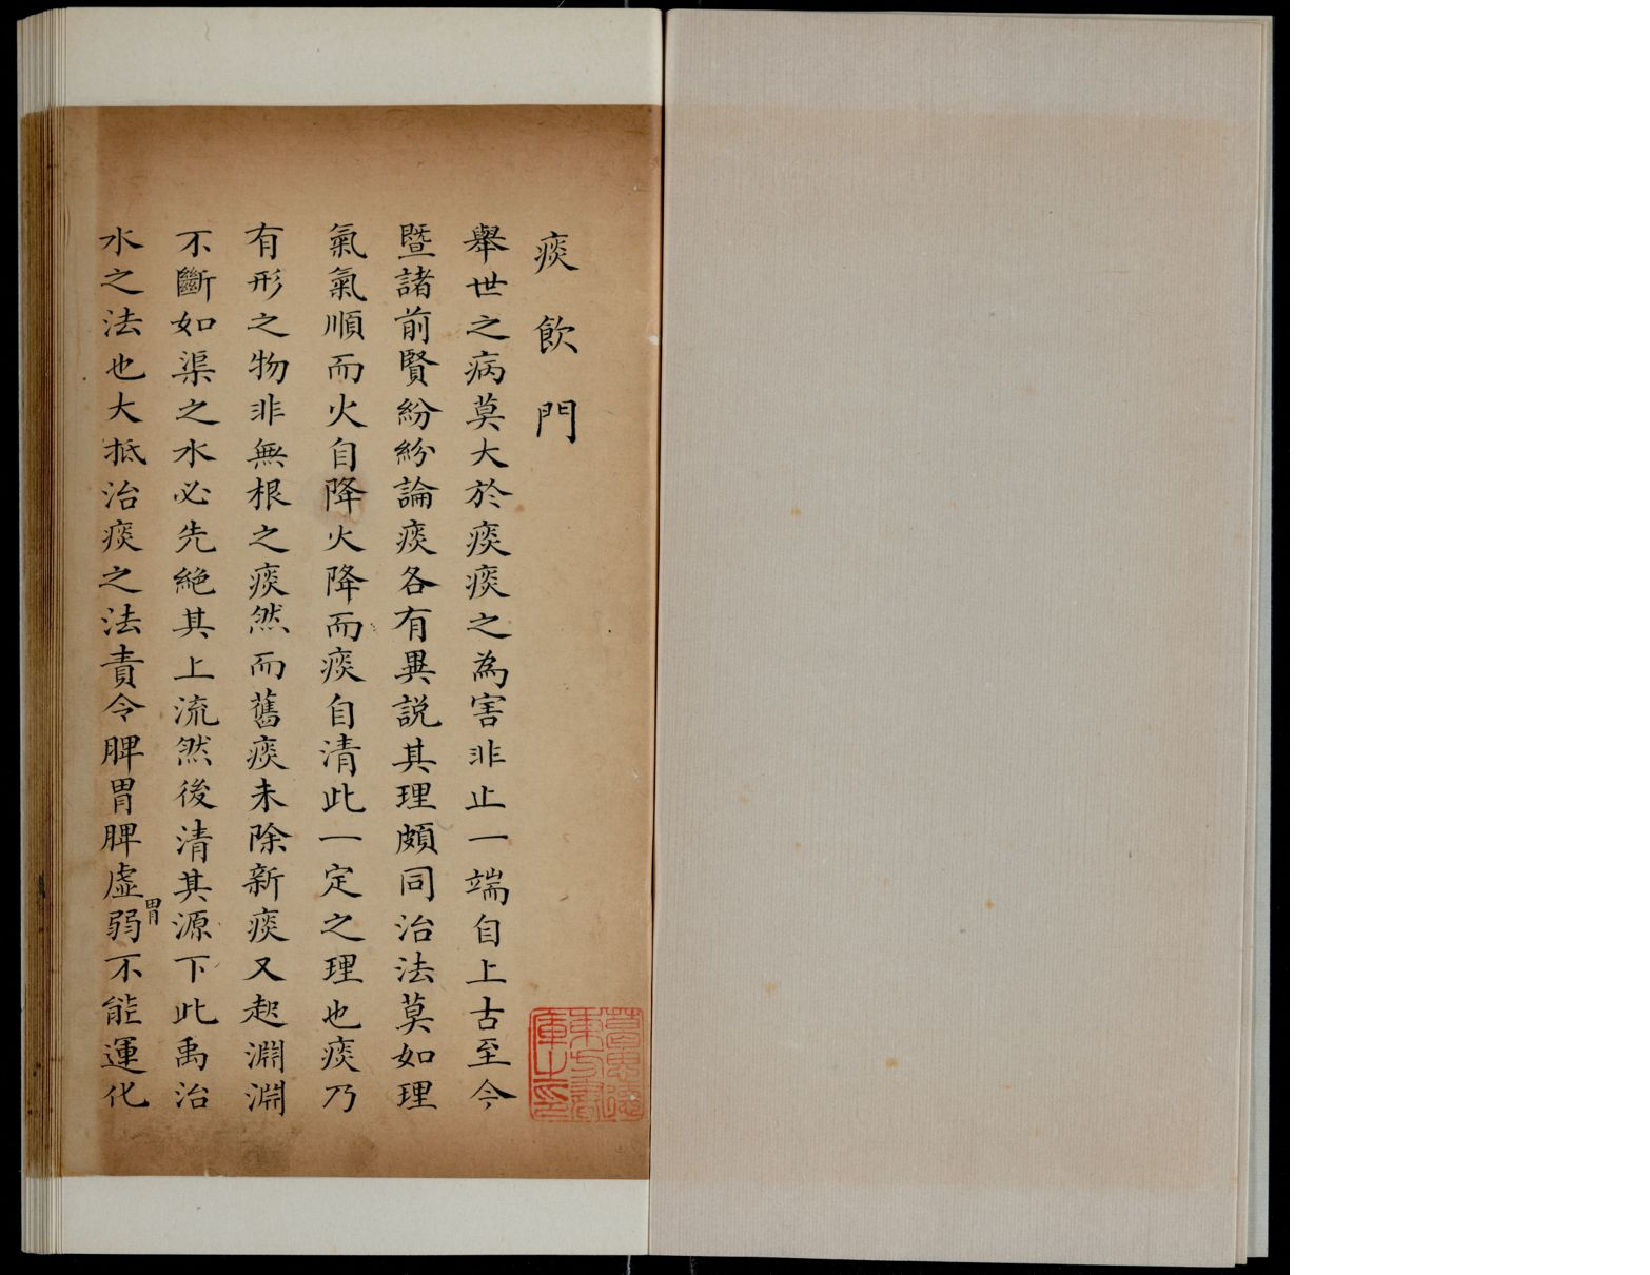 痰飲門
舉世之病莫大於痰痰之為害非止一端自上古至今
暨諸前賢紛紛論痰各有異説其理頗同治法莫如理
氣氣順而火自降火降而痰自清此一定之理也痰乃
有形之物非無根之痰然而舊痰未除新痰又起淵淵
不斷如渠之水必先絶其上流然後清其源下此禹治
水之法也大抵治痰之法責令脾胃脾虛弱不能運化
胃